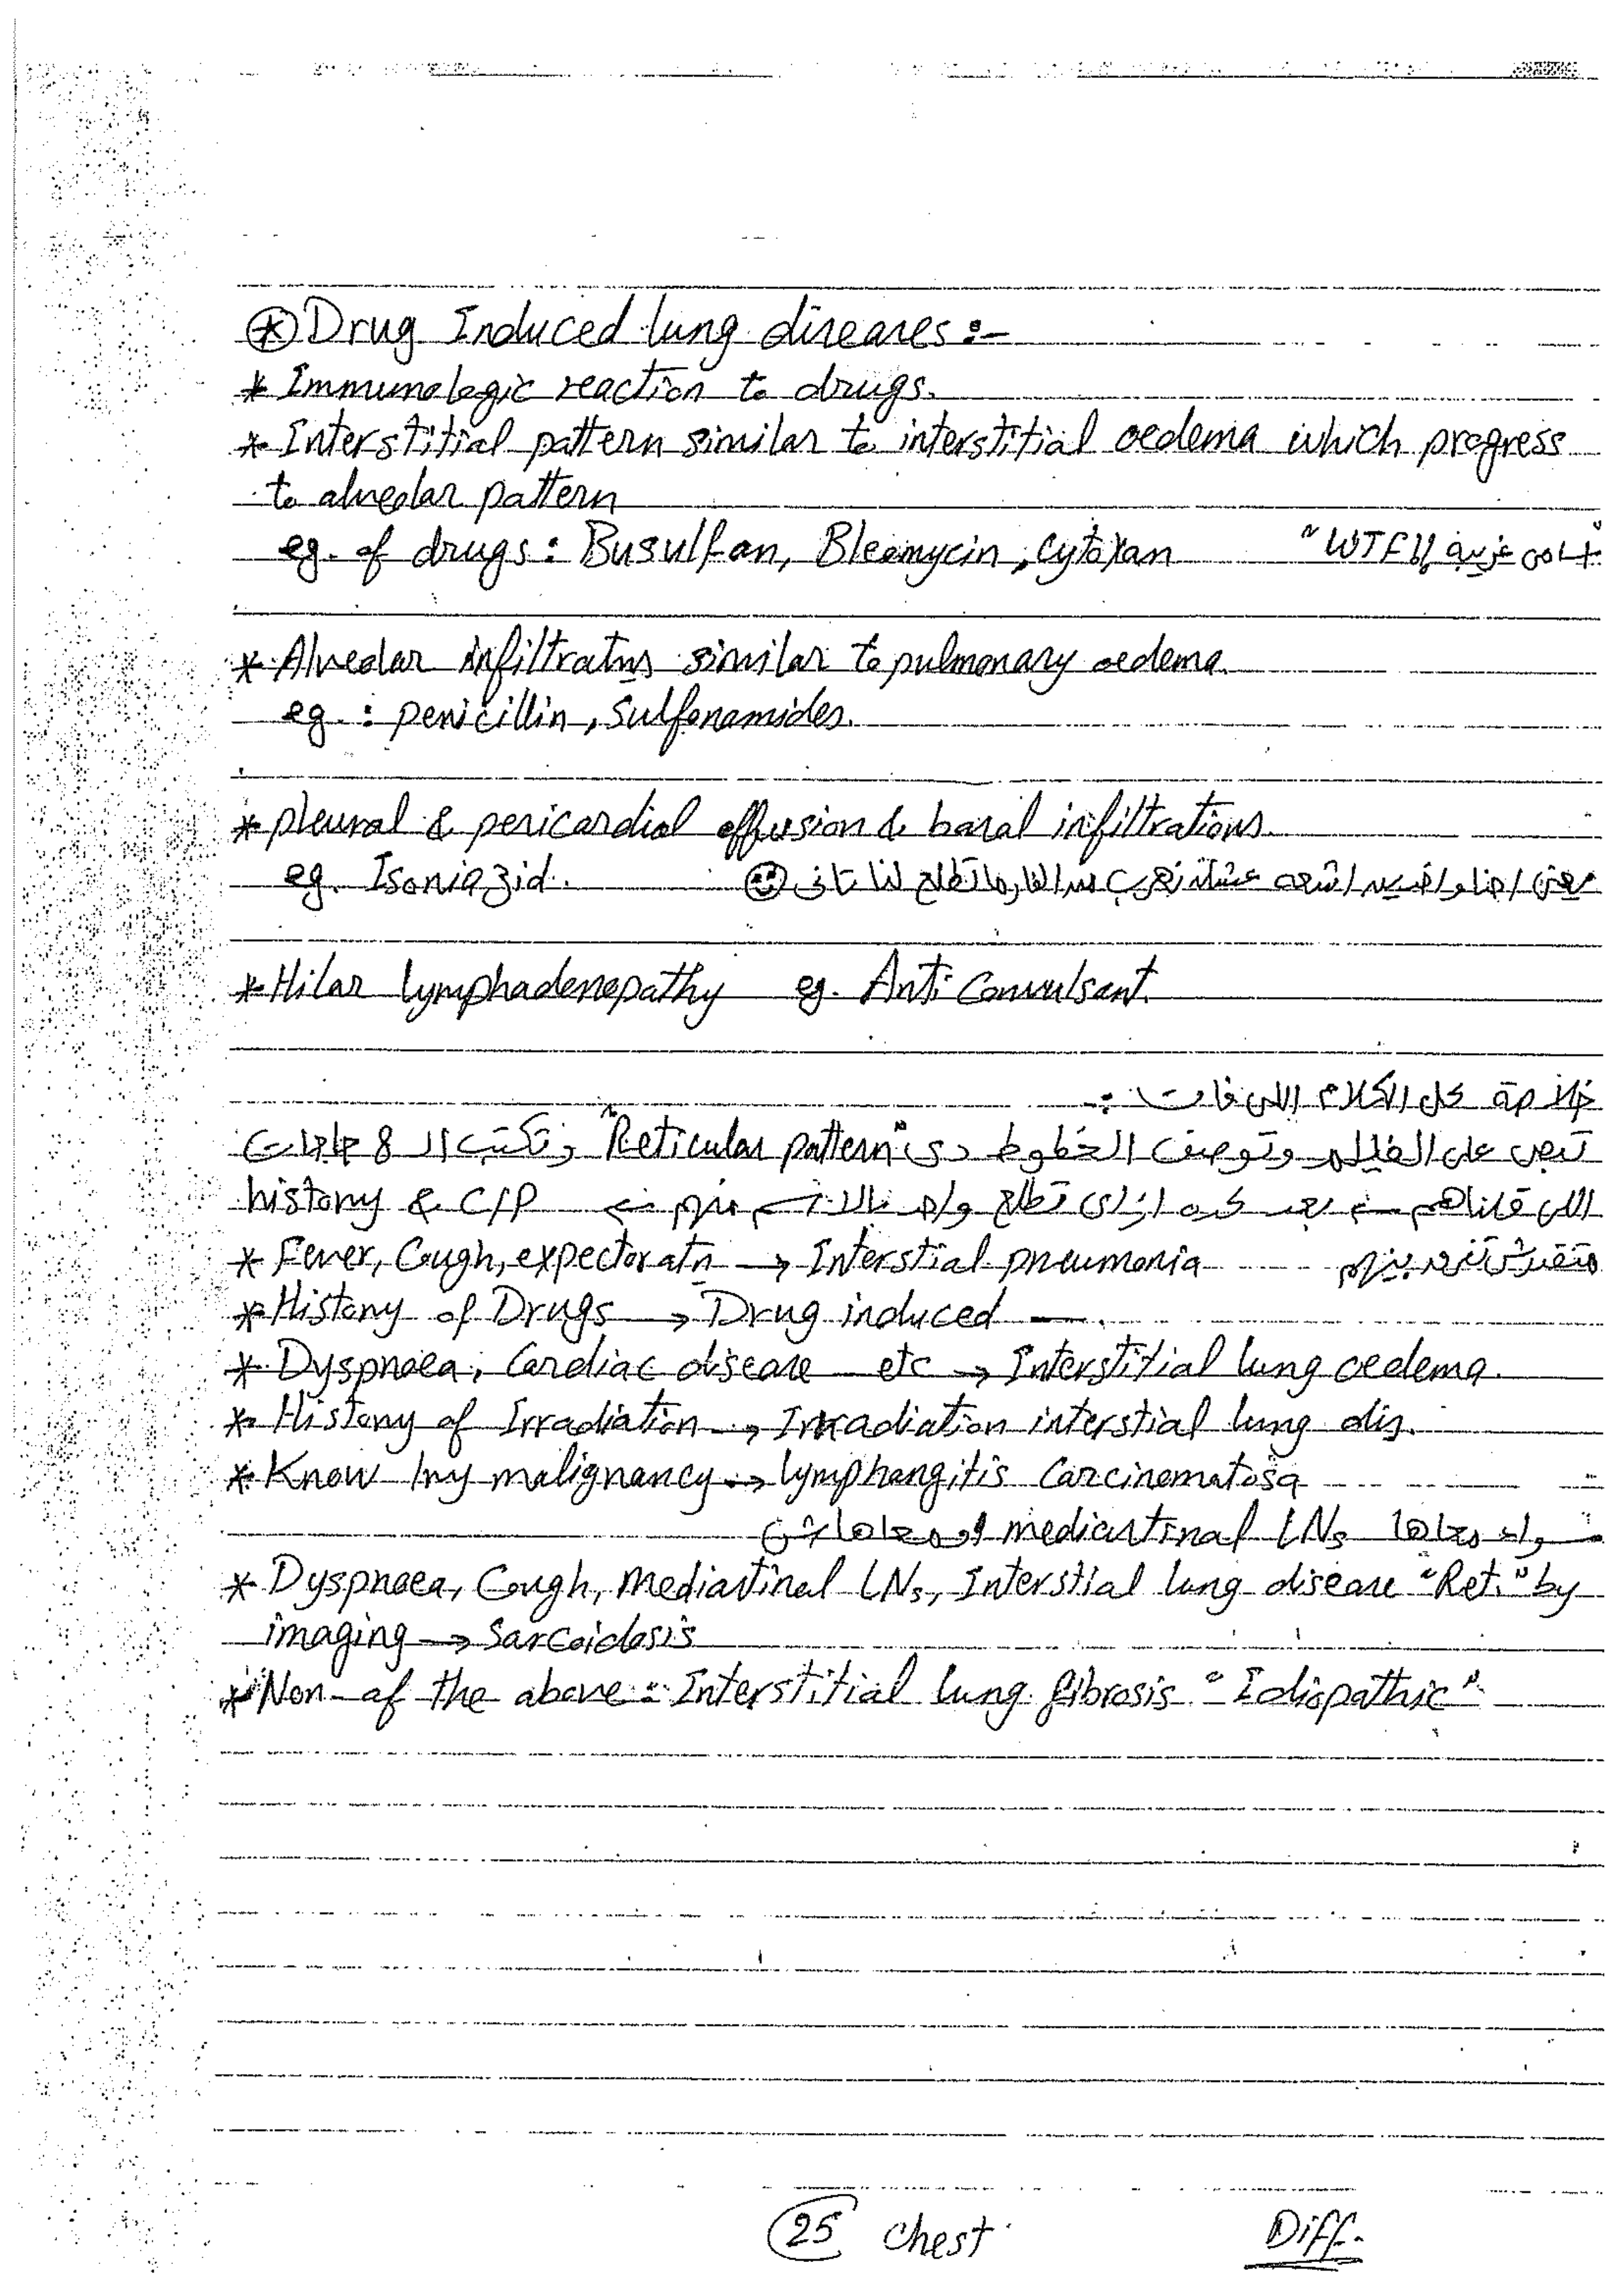 ⊛ Drug Induced lung diseases :-
* Immunologic reaction to drugs.
* Interstitial pattern similar to interstitial oedema which progress
to alveolar pattern
eg. of drugs : Busulfan, Bleomycin, Cytoxan "WTF!!
* Alveolar infiltratns similar to pulmonary oedema.
eg. : penicillin, Sulfonamides.
* pleural & pericardial effusion & basal infiltrations.
eg. Isoniazid. تطلع لنا تانى ☺
* Hilar lymphadenopathy eg. Anti Convulsant.
خلاصة كل الكلام اللى فات :-
تبص على الفيلم وتوصف الخطوط دى "Reticular pattern" وتكتب الـ 8 حاجات
اللى قلناهم بعد كده ازاى تطلع واحد منهم history & C/P
* Fever, Cough, expectoratn → Interstial pneumonia
* History of Drugs → Drug induced —.
* Dyspnoea, Cardiac disease etc → Interstitial lung oedema.
* History of Irradiation → Irradiation interstial lung dis.
* Know my malignancy → lymphangitis Carcinomatosa
معاها mediastinal LNs او معاهاش
* Dyspnoea, Cough, Mediastinal LNs, Interstial lung disease "Ret." by
imaging → Sarcoidosis
* Non of the above : Interstitial lung fibrosis "Idiopathic"
25 chest Diff.